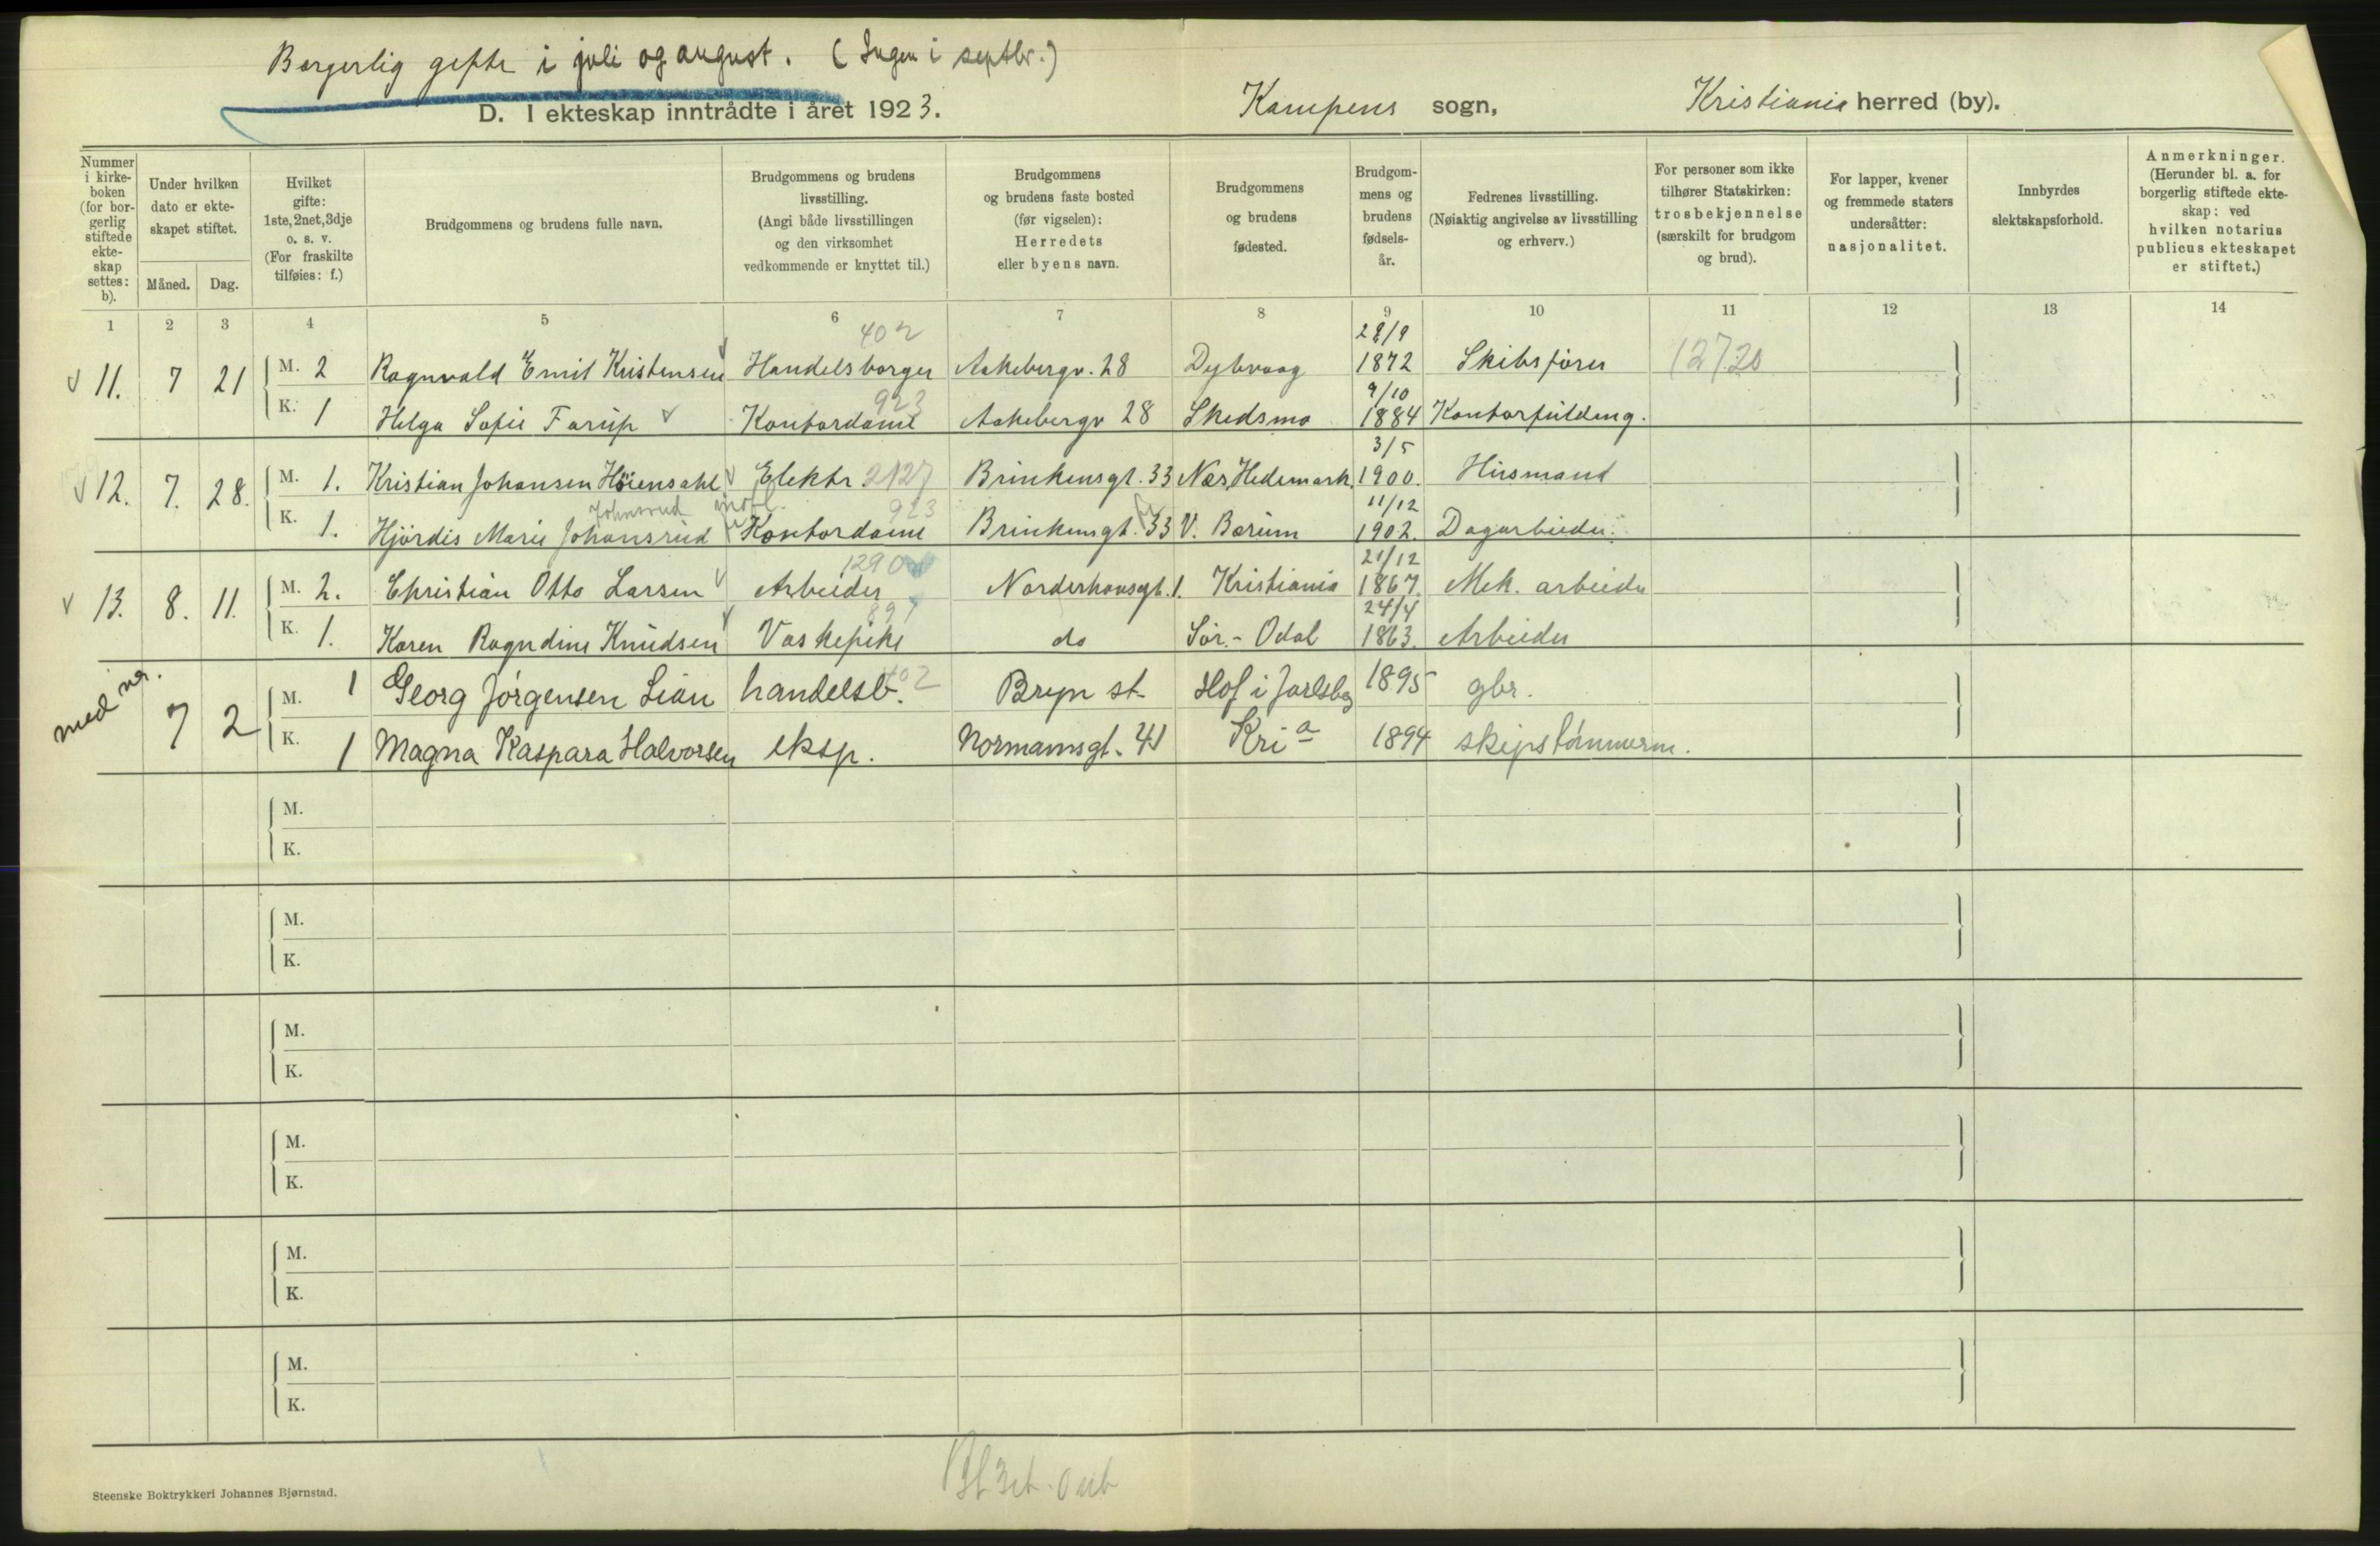 Borgerlig gifte i juli og august. (Ingen i septbr.)
D. I ekteskap inntrådte i året 1923. Kampens sogn, Kristiania herred (by).
Nummer i kirkeboken (for borgerlig stiftede ekteskap settes: b).
Under hvilken dato er ekteskapet stiftet.
Måned. Dag.
Hvilket gifte: 1ste, 2net, 3dje o. s. v. (For fraskilte tilføies: f.)
Brudgommens og brudens fulle navn.
Brudgommens og brudens livsstilling. (Angi både livsstillingen og den virksomhet vedkommende er knyttet til.)
Brudgommens og brudens faste bosted (før vigselen): Herredets eller byens navn.
Brudgommens og brudens fødested.
Brudgommens og brudens fødselsår.
Fedrenes livsstilling. (Nøiaktig angivelse av livsstilling og erhverv.)
For personer som ikke tilhører Statskirken: trosbekjennelse (særskilt for brudgom og brud).
For lapper, kvener og fremmede staters undersåtter: nasjonalitet.
Innbyrdes slektskapsforhold.
Anmerkninger. (Herunder bl. a. for borgerlig stiftede ekteskap: ved hvilken notarius publicus ekteskapet er stiftet.)
1 2 3 4 5 6 7 8 9 10 11 12 13 14
402 28/9
11. 7 21 M. 2 Ragnvald Emil Kristensen Handelsborger Aakebergv. 28 Dybvaag 1872 Skibsfører 12720
923 9/10
K. 1 Helga Sofie Farup Kontordame Aakebergv 28 Skedsmo 1884 Kontorfuldmg.
3/5
12. 7. 28. M. 1. Kristian Johansen Höiensahl Elektr. 2127 Brinkensgt. 33 Nes, Hedemark. 1900. Husmand
Johnsrud 923 11/12
K. 1. Hjördis Marie Johansrud Kontordame Brinkensgt. 33 V. Bærum 1902. Dagarbeider.
1290 21/12
13. 8. 11. M. 2. Christian Otto Larsen Arbeider Norderhovsgt. 1. Kristiania 1867. Mek. arbeider
897 24/4
K. 1. Karen Ragndine Knudsen Vaskepike do Sör.-Odal 1863. Arbeider
med no.
7 2 M. 1 Georg Jörgensen Lian handelsb. 402 Bryn st. Hof i Jarlsbg 1895 gbr.
K. 1 Magna Kaspara Halvorsen eksp. Normannsgt. 41 Kria 1894 skipstömmerm.
M.
K.
M.
K.
M.
K.
M.
K.
M.
K.
M.
K.
Steenske Boktrykkeri Johannes Bjørnstad.